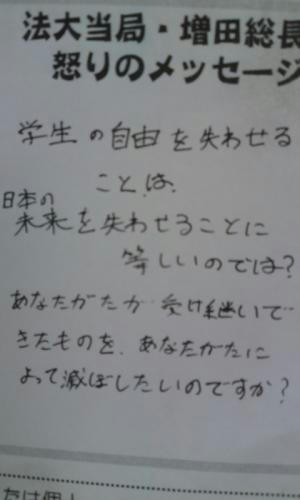 法大当局・増田総長
怒りのメッセージ
学生の自由を失わせる
ことは、
日本の
未来を失わせることに
等しいのでは?
あなたがたが受け継いで
きたものを、あなたがたに
よって滅ぼしたいのですか?